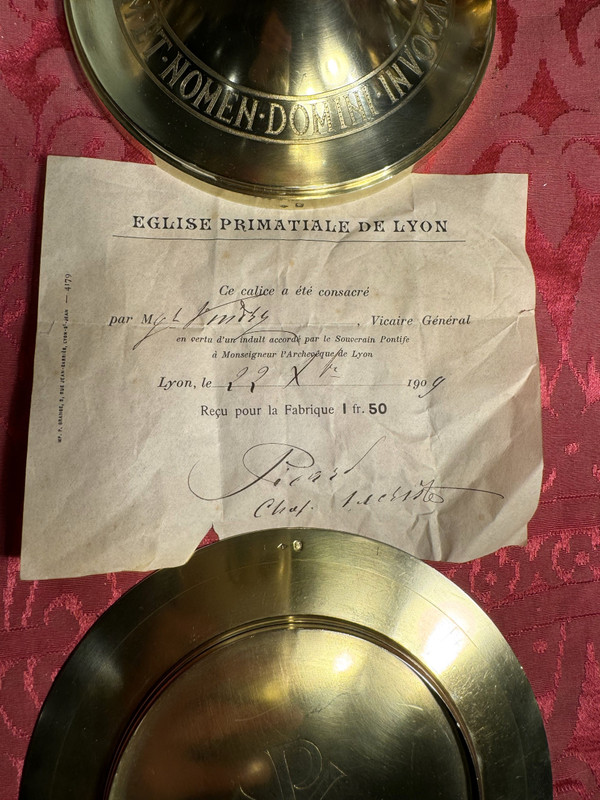 ET · NOMEN · DOMINI · INVOCA
EGLISE PRIMATIALE DE LYON
Ce calice a été consacré
par Mgr, Vicaire Général
en vertu d'un indult accordé par le Souverain Pontife
à Monseigneur l'Archevêque de Lyon
Lyon, le 22 Xbre 1909
Reçu pour la Fabrique 1 fr. 50
Picard
Chap. sacriste
4179